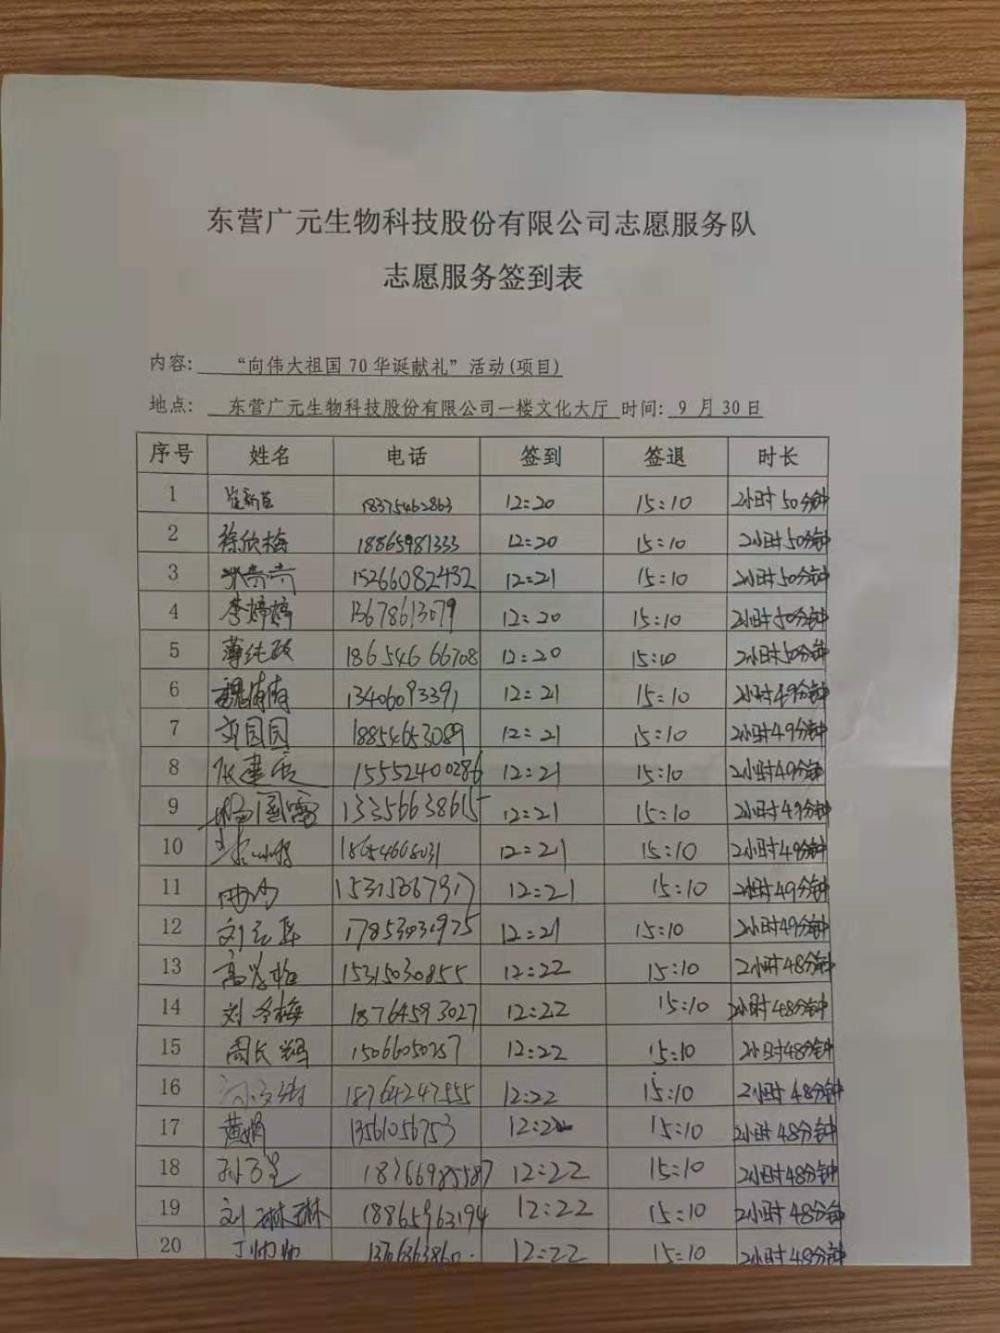 东营广元生物科技股份有限公司志愿服务队
志愿服务签到表
内容: “向伟大祖国70华诞献礼”活动(项目)
地点: 东营广元生物科技股份有限公司一楼文化大厅 时间: 9 月 30 日
序号 姓名 电话 签到 签退 时长
1 18375462863 12:20 15:10 2小时50分钟
2 徐欣梅 18865981333 12:20 15:10 2小时50分钟
3 15266082432 12:21 15:10 2小时50分钟
4 李婷婷 13678613079 12:20 15:10 2小时50分钟
5 18654666708 12:20 15:10 2小时50分钟
6 魏倩倩 13406093391 12:21 15:10 2小时49分钟
7 18854653089 12:21 15:10 2小时49分钟
8 15552400286 12:21 15:10 2小时49分钟
9 杨国雷 13356638615 12:21 15:10 2小时49分钟
10 12:21 15:10 2小时49分钟
11 12:21 15:10 2小时49分钟
12 12:21 15:10 2小时49分钟
13 15315030855 12:22 15:10 2小时48分钟
14 刘冬梅 18764593027 12:22 15:10 2小时48分钟
15 周长辉 15066050257 12:22 15:10 2小时48分钟
16 18764247555 12:22 15:10 2小时48分钟
17 黄娟 13561056753 12:22 15:10 2小时48分钟
18 18766985587 12:22 15:10 2小时48分钟
19 刘琳琳 18865963194 12:22 15:10 2小时48分钟
20 丁帅帅 12:22 15:10 2小时48分钟